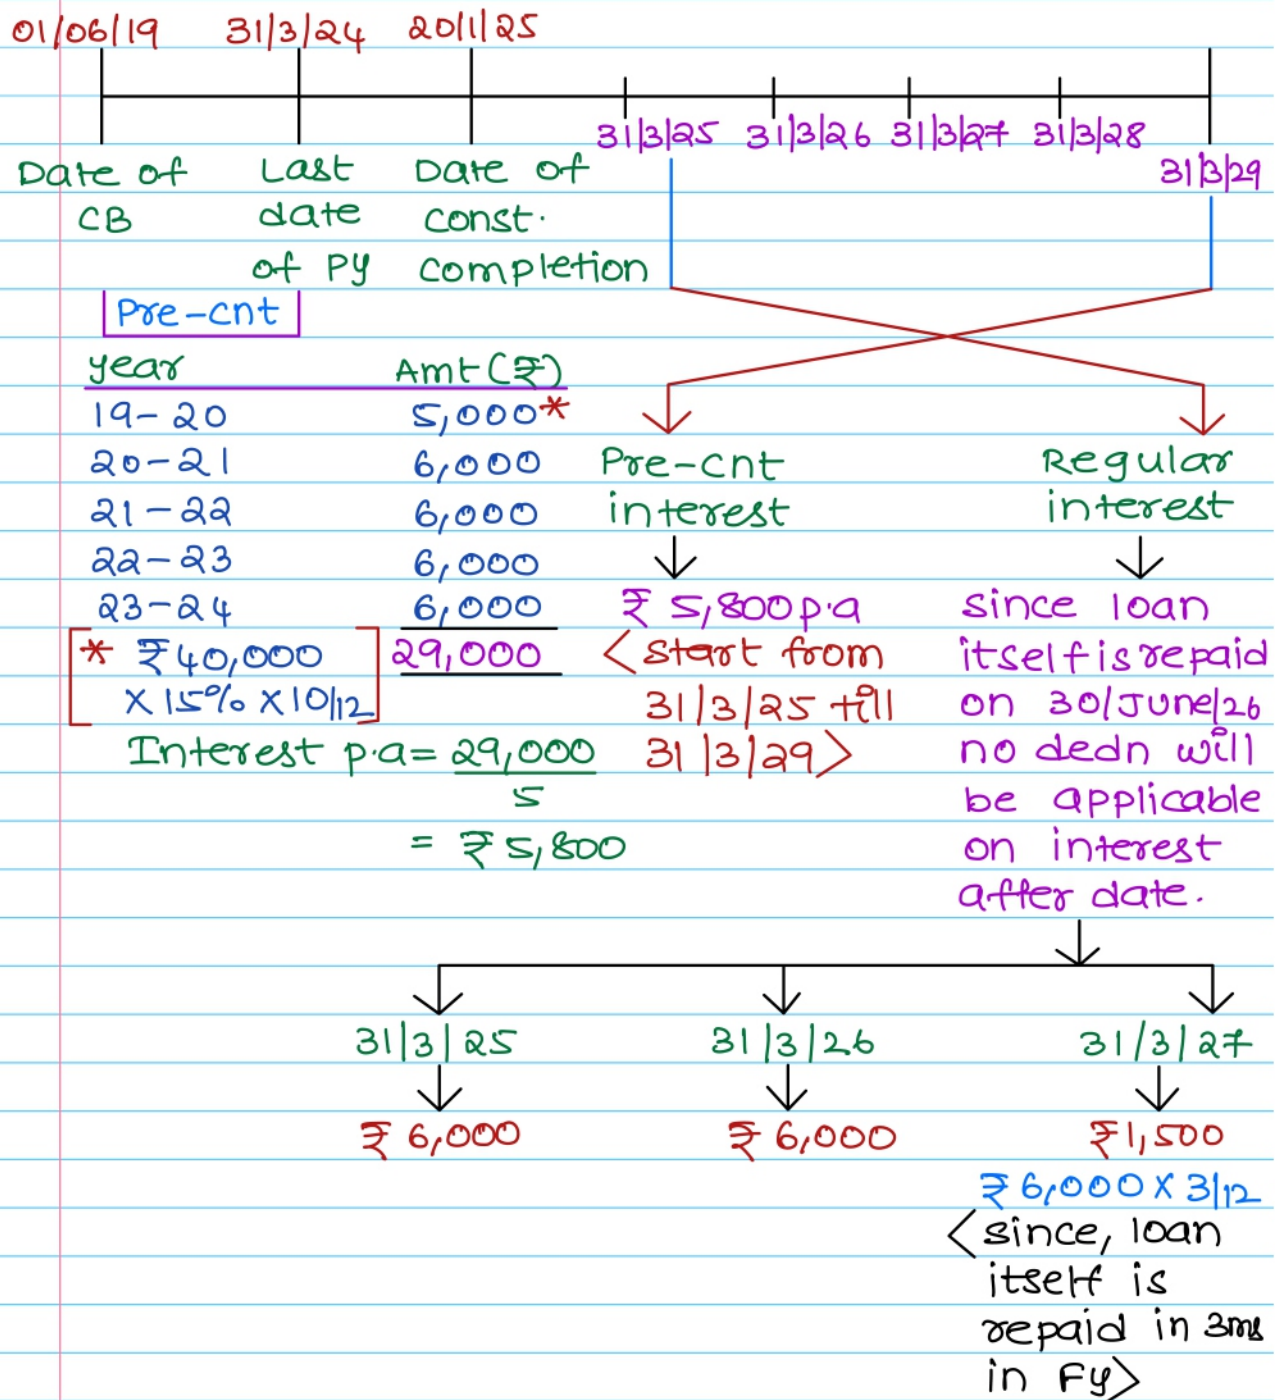 01/06/19 31/3/24 20/1/25
31/3/25 31/3/26 31/3/27 31/3/28
31/3/29
Date of CB
Last date of PY
Date of const. completion
Pre-cnt
year Amt (₹)
19-20 5,000*
20-21 6,000
21-22 6,000
22-23 6,000
23-24 6,000
29,000
[* ₹40,000
x 15% x 10/12]
Interest p.a = 29,000
5
= ₹ 5,800
Pre-cnt
interest
₹ 5,800 p.a
<start from
31/3/25 till
31/3/29>
Regular
interest
since loan
itself is repaid
on 30/June/26
no dedn will
be applicable
on interest
after date.
31/3/25 31/3/26 31/3/27
₹ 6,000 ₹ 6,000 ₹1,500
₹ 6,000 x 3/12
<since, loan
itself is
repaid in 3ms
in Fy>